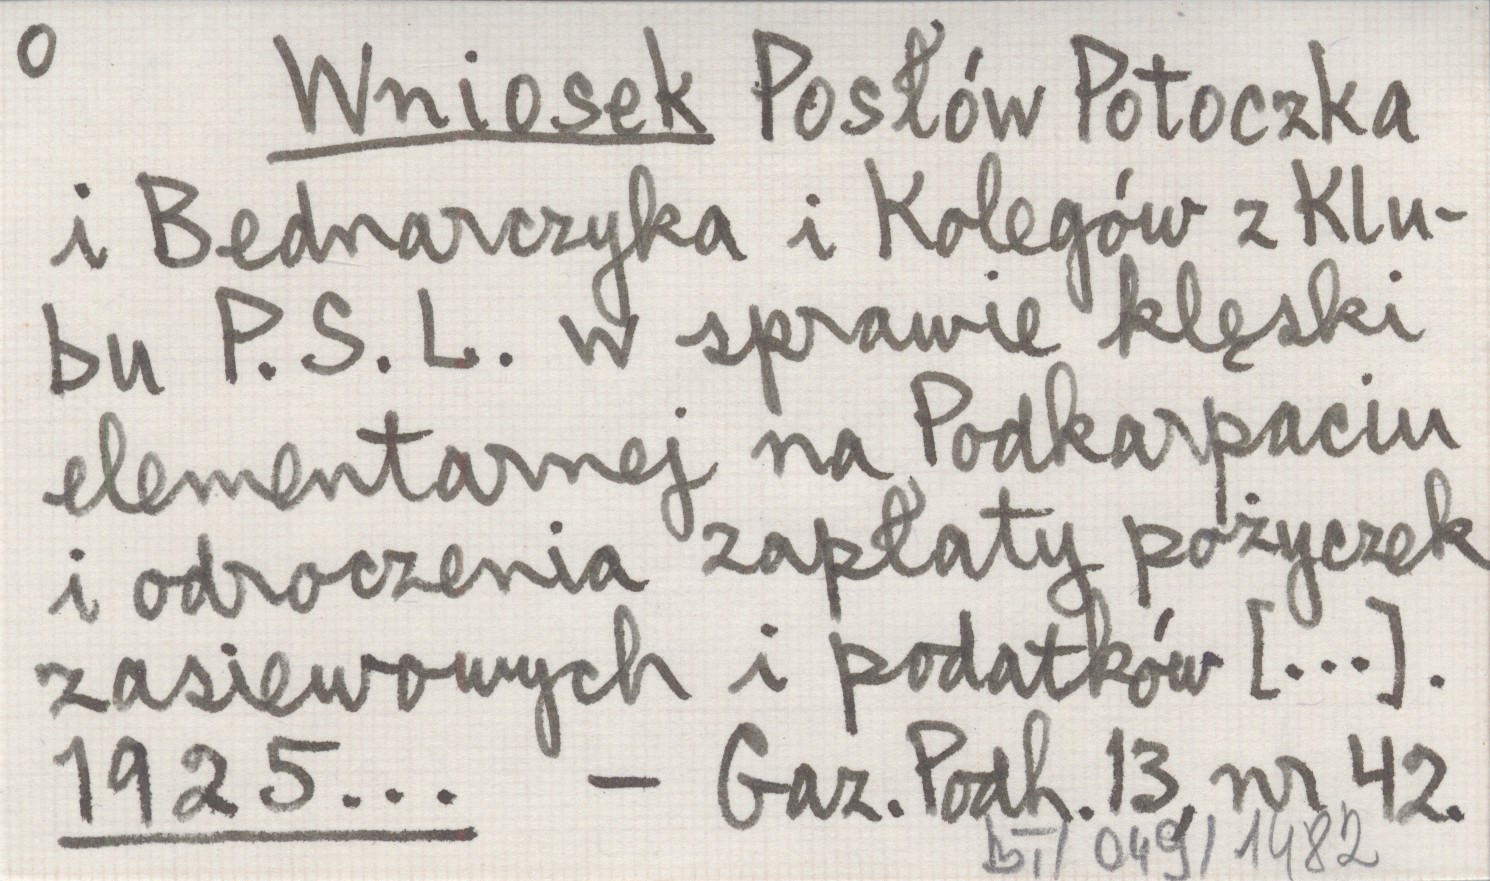 O
Wniosek Posłów Potoczka
i Bednarczyka i Kolegów z Klu-
bu P.S.L. w sprawie klęski
elementarnej na Podkarpaciu
i odroczenia zapłaty pożyczek
zasiewowych i podatków [...].
1925... – Gaz. Podh. 13, nr 42.
049/1482